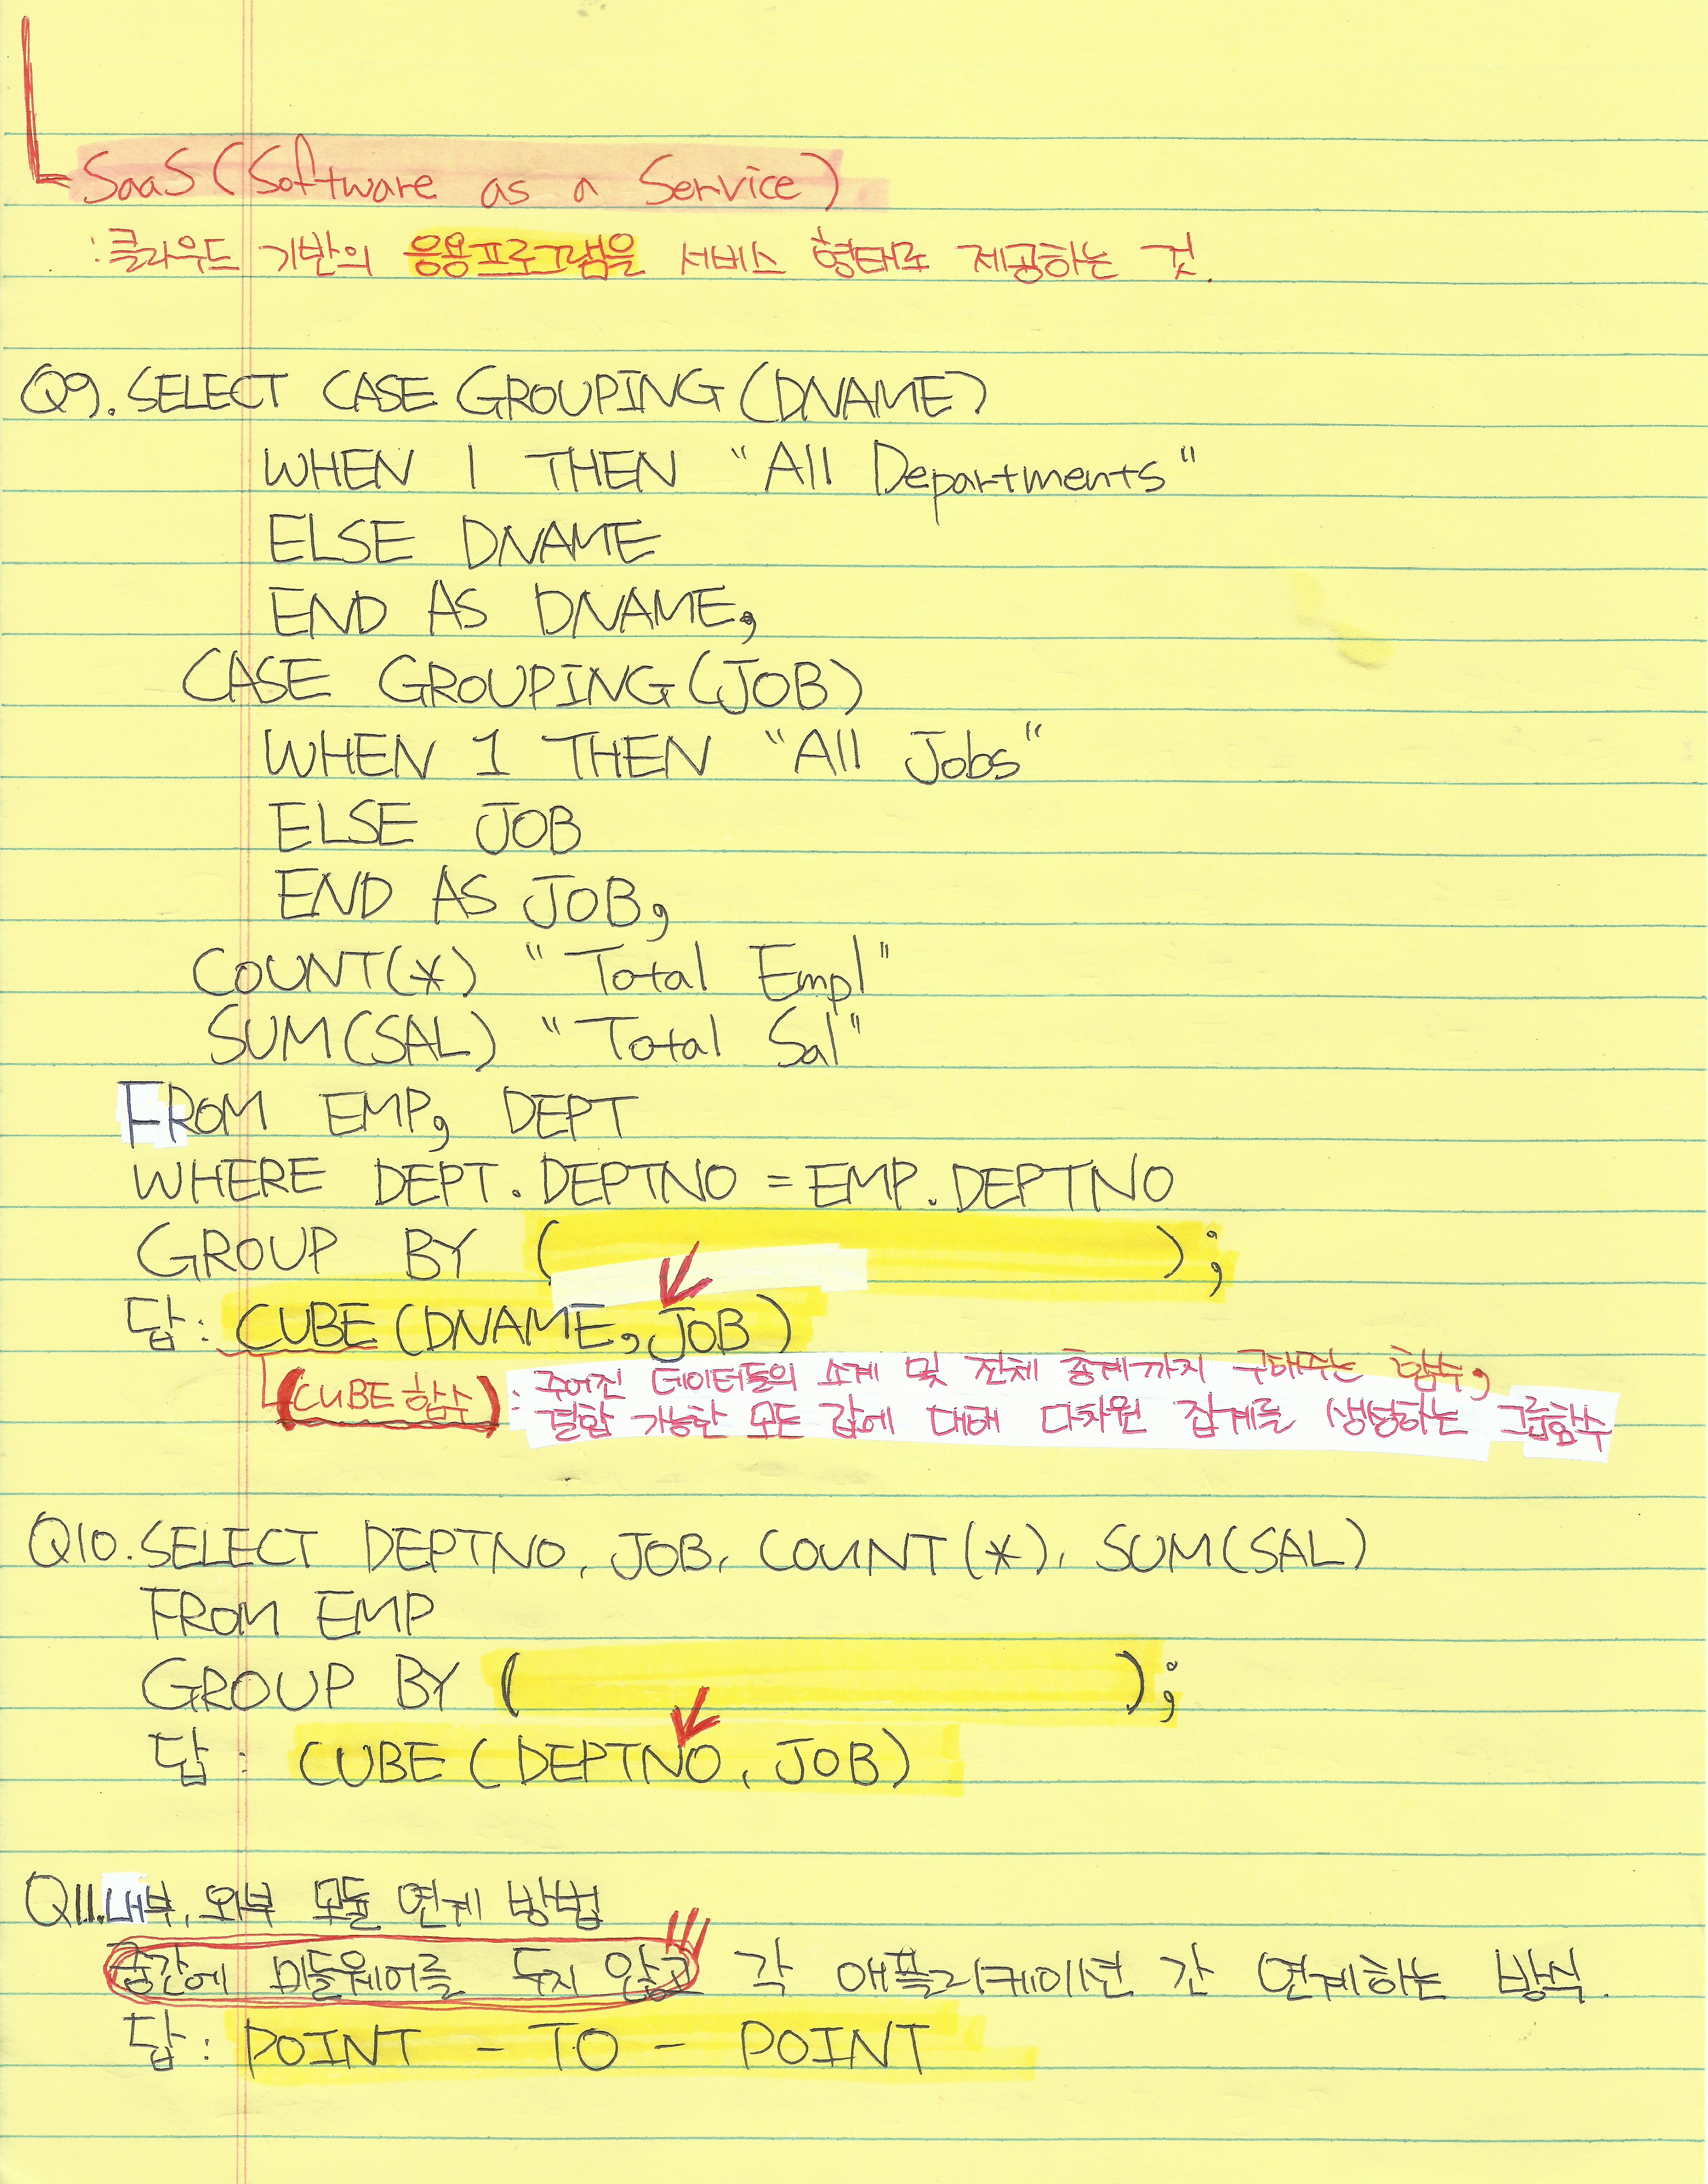 SaaS (Software as a Service)
: 클라우드 기반의 응용프로그램을 서비스 형태로 제공하는 것.
Q9. SELECT CASE GROUPING(DNAME)
WHEN 1 THEN "All Departments"
ELSE DNAME
END AS DNAME,
CASE GROUPING(JOB)
WHEN 1 THEN "All Jobs"
ELSE JOB
END AS JOB,
COUNT(*) "Total Empl"
SUM(SAL) "Total Sal"
FROM EMP, DEPT
WHERE DEPT.DEPTNO = EMP.DEPTNO
GROUP BY (          );
답 : CUBE (DNAME, JOB)
(CUBE 함수) : 주어진 데이터들의 소계 및 전체 총계까지 구해주는 함수,
결합 가능한 모든 값에 대해 다차원 집계를 생성하는 그룹함수
Q10. SELECT DEPTNO, JOB, COUNT(*), SUM(SAL)
FROM EMP
GROUP BY (          );
답 : CUBE (DEPTNO, JOB)
Q11. 내부, 외부 모듈 연계 방법
중간에 미들웨어를 두지 않고 각 애플리케이션 간 연계하는 방식.
답 : POINT - TO - POINT